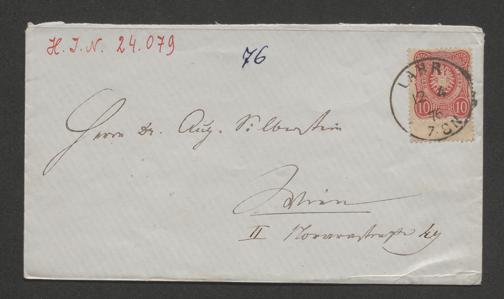 H. I. N. 24.079
76
LAHR
12 4
76
7. N.
10 10
Herrn Dr. Aug. Silberstein
Wien
II